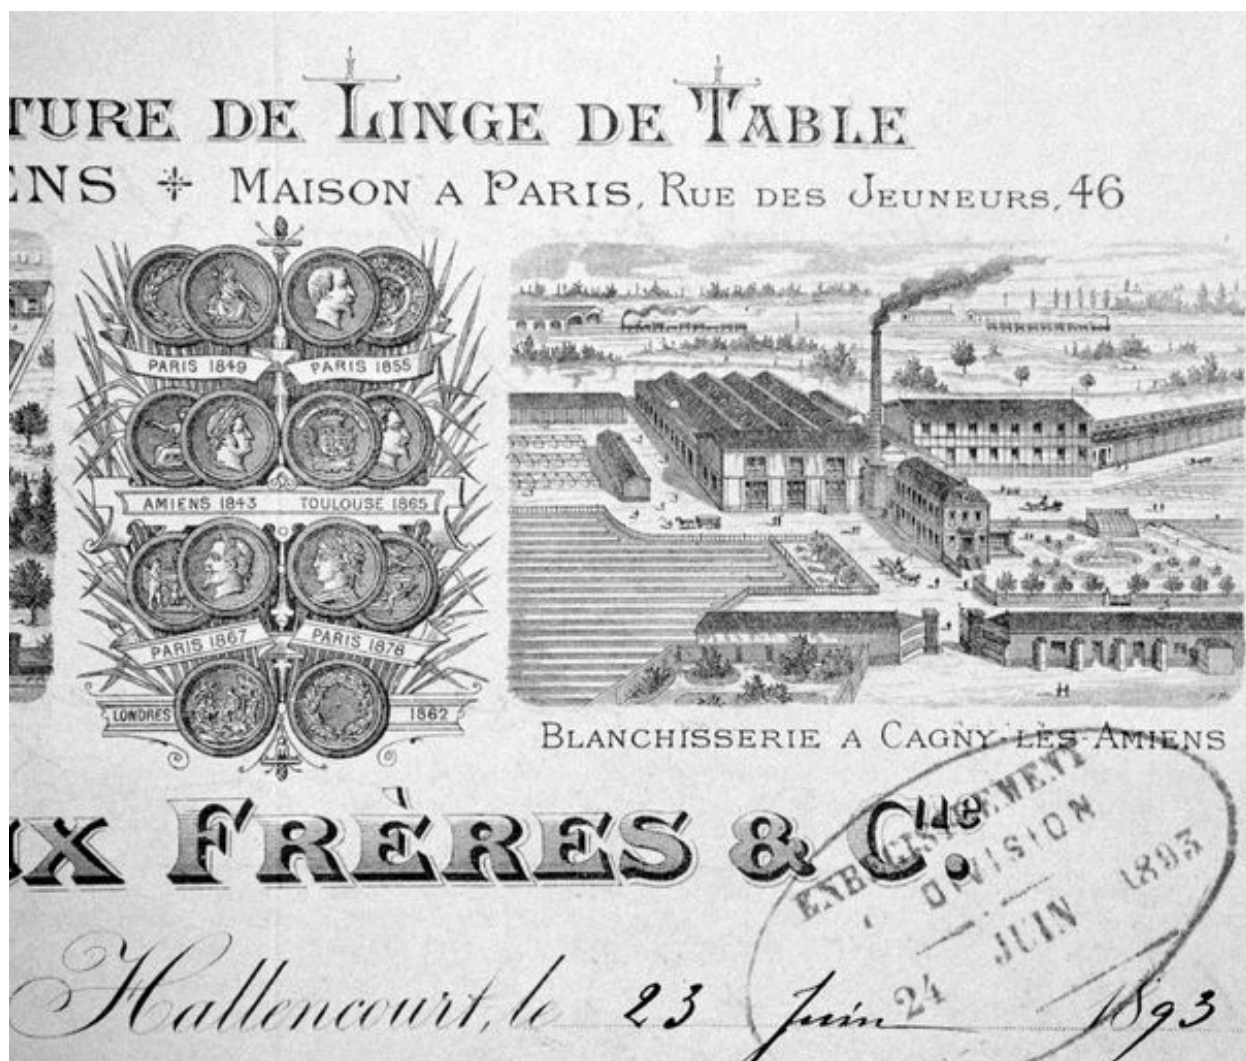 TURE DE LINGE DE TABLE
ENS MAISON A PARIS, RUE DES JEUNEURS, 46
PARIS 1849 PARIS 1855
AMIENS 1843 TOULOUSE 1865
PARIS 1867 PARIS 1878
LONDRES 1862
BLANCHISSERIE A CAGNY-LÈS-AMIENS
UX FRÈRES & Cie.
ENREGISTREMENT
DIVISION
24 JUIN 1893
Hallencourt, le 23 Juin 1893